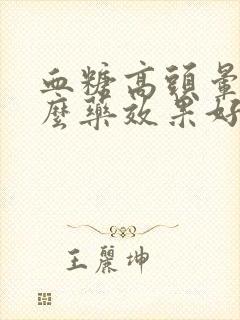 血糖高頭暈
麼藥效果好
王麗坤